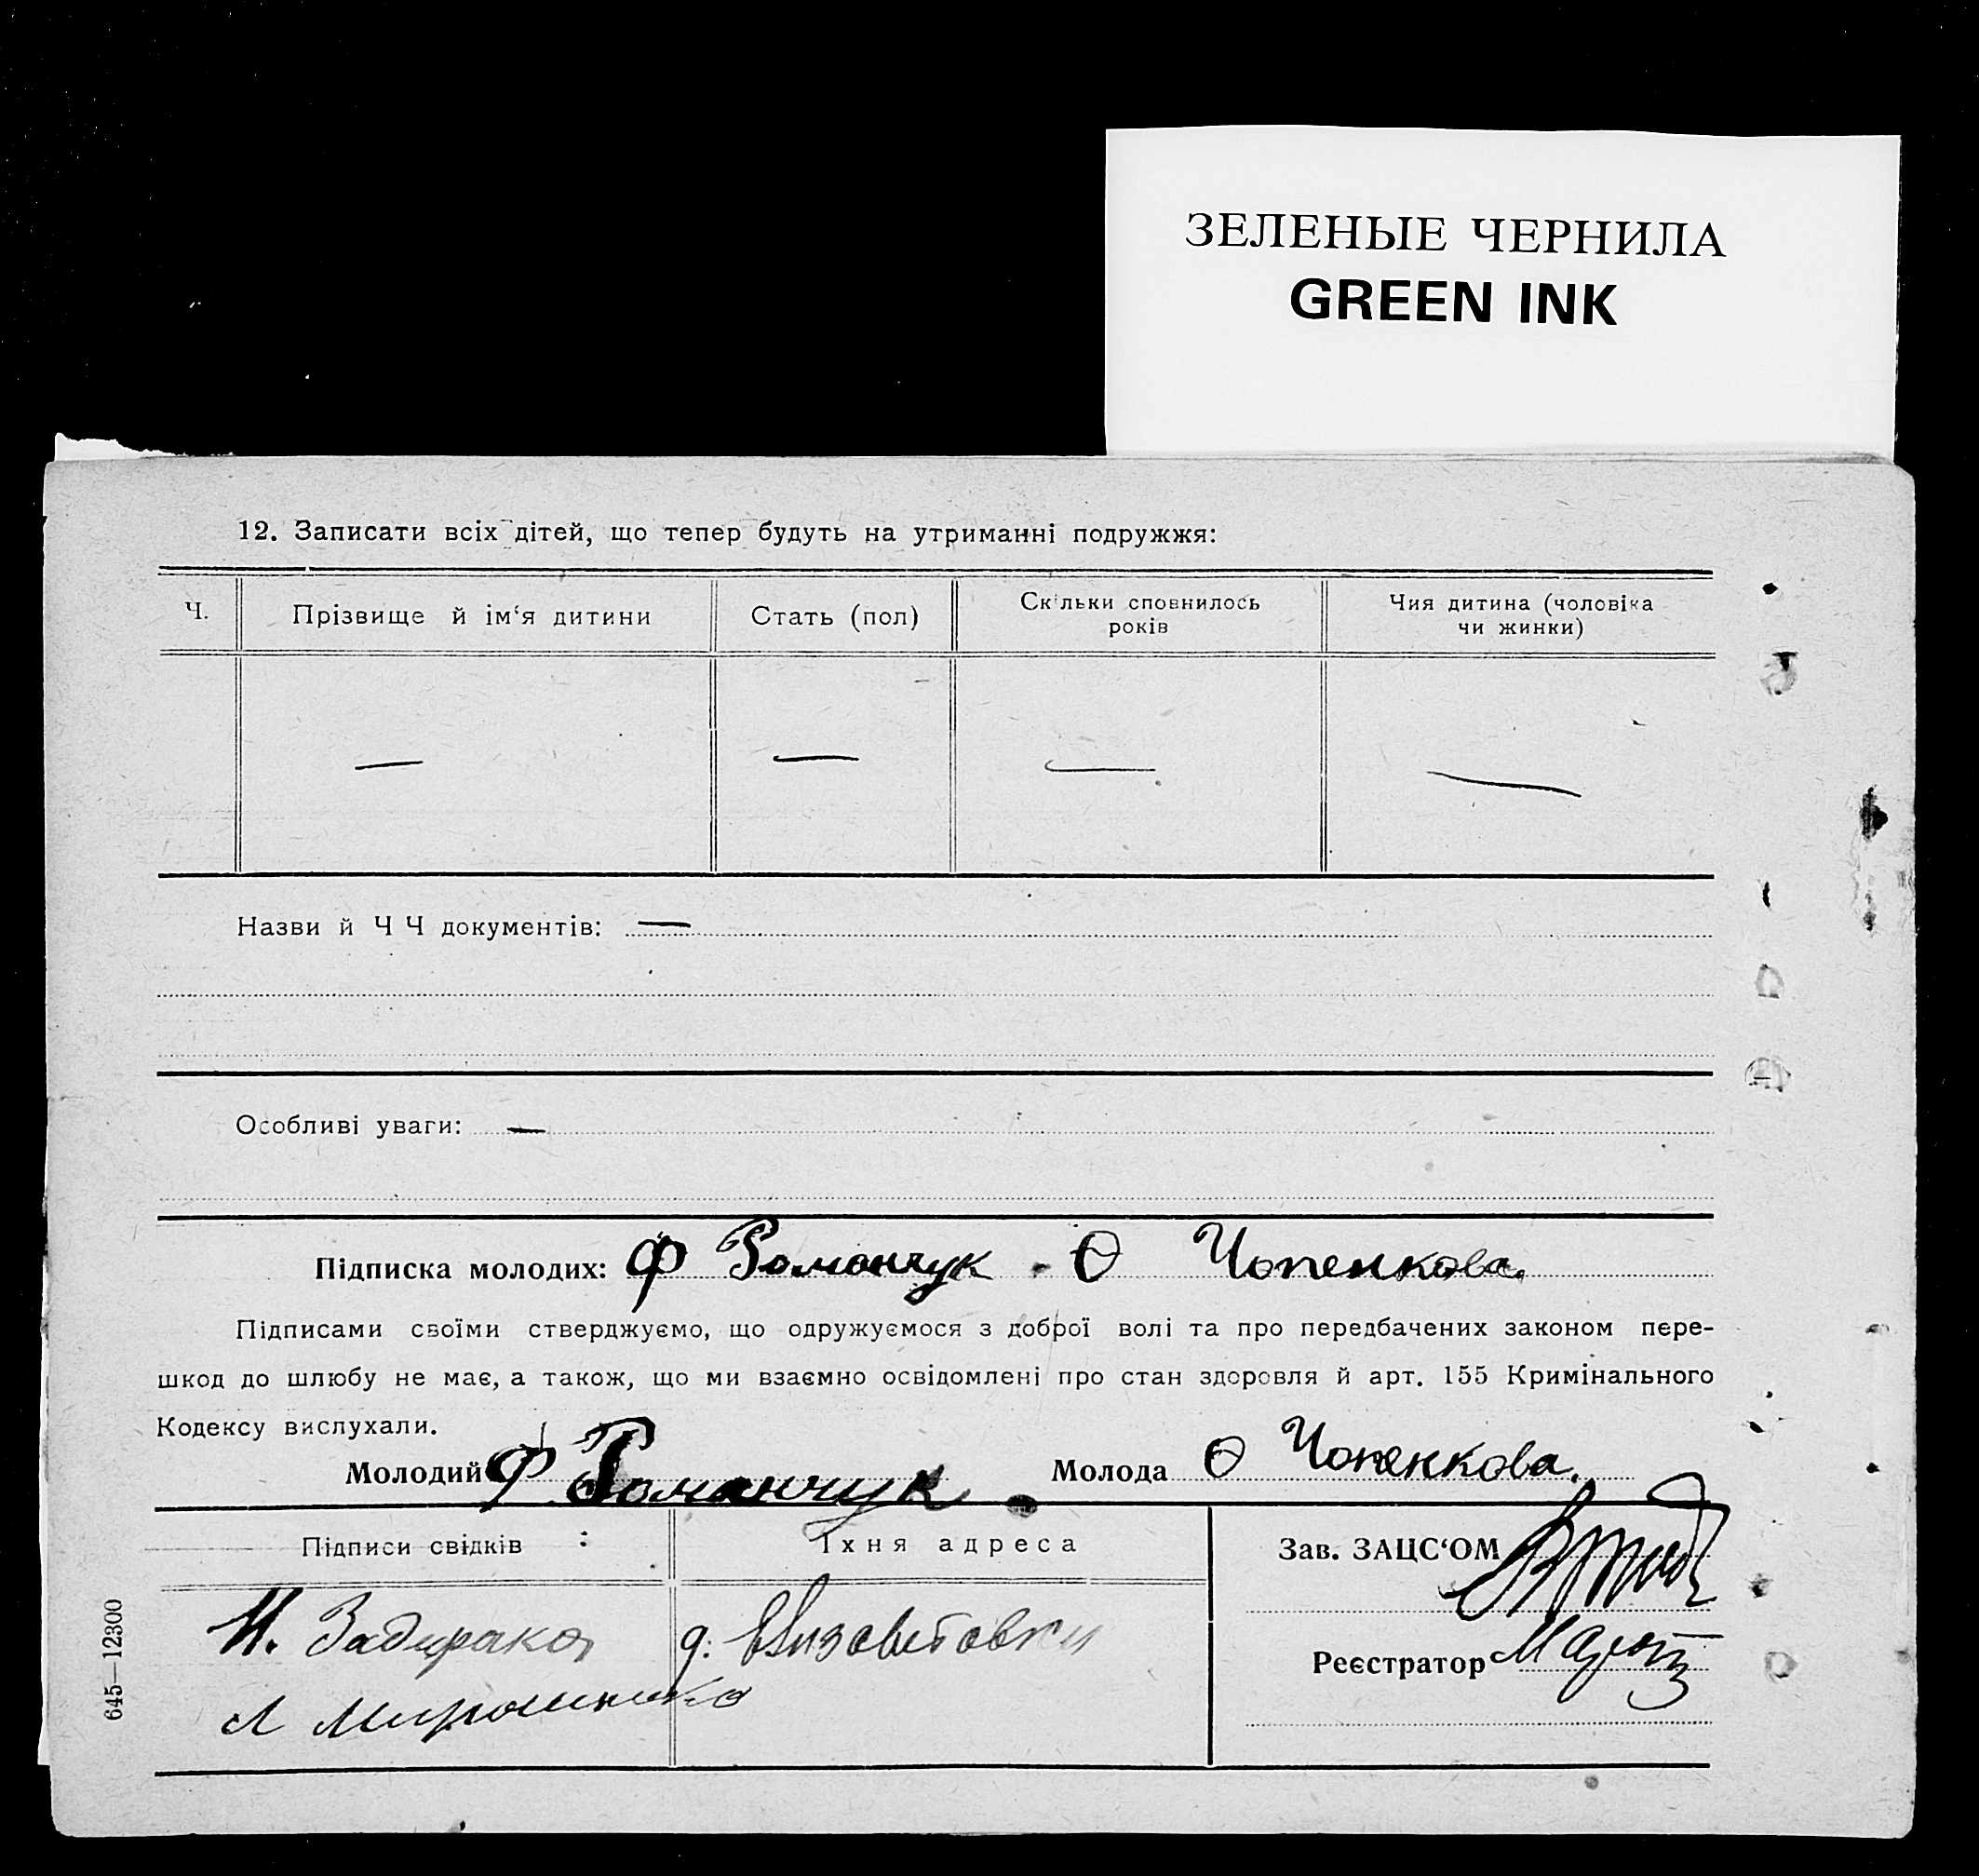 ЗЕЛЕНЫЕ ЧЕРНИЛА
GREEN INK
12. Записати всіх дітей, що тепер будуть на утриманні подружжя:
Ч. Прізвище й ім‘я дитини Стать (пол) Скільки сповнилось років Чия дитина (чоловіка чи жинки)
— — — —
Назви й Ч Ч документів: —
Особливі уваги: —
Підписка молодих: Ф Романчук - О Чопенкова.
Підписами своїми стверджуємо, що одружуємося з доброї волі та про передбачених законом пере-
шкод до шлюбу не має, а також, що ми взаємно освідомлені про стан здоровля й арт. 155 Кримінального
Кодексу вислухали.
Молодий Ф Романчук Молода О Чопенкова.
Підписи свідків : Їхня адреса Зав. ЗАЦС‘ОМ
И. Задирака д. Елизаветовки
Реєстратор
Л Мирошнико
645—12300